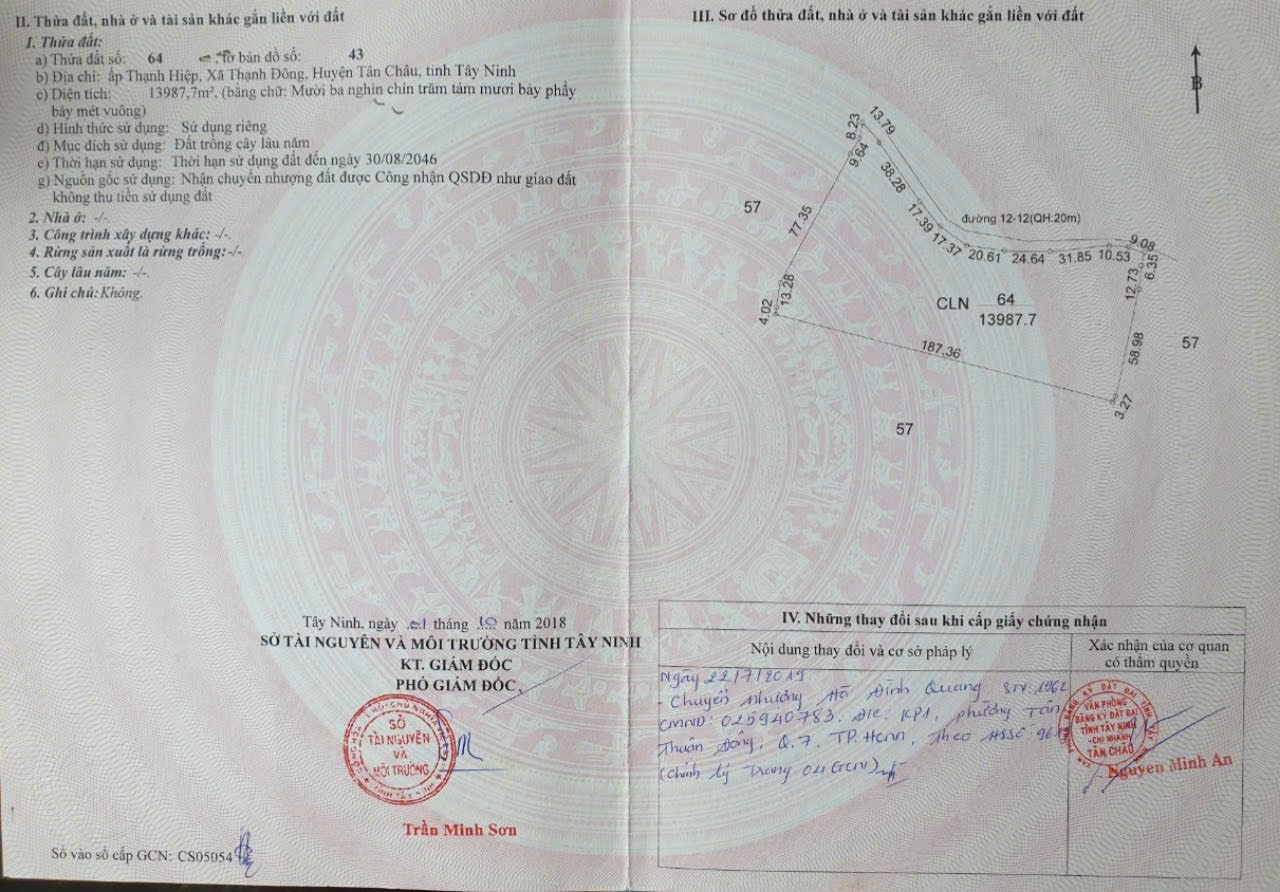 II. Thửa đất, nhà ở và tài sản khác gắn liền với đất
1. Thửa đất:
a) Thửa đất số: 64 Tờ bản đồ số: 43
b) Địa chỉ: ấp Thạnh Hiệp, Xã Thạnh Đông, Huyện Tân Châu, tỉnh Tây Ninh
c) Diện tích: 13987,7m², (bằng chữ: Mười ba nghìn chín trăm tám mươi bảy phẩy
bảy mét vuông)
d) Hình thức sử dụng: Sử dụng riêng
đ) Mục đích sử dụng: Đất trồng cây lâu năm
e) Thời hạn sử dụng: Thời hạn sử dụng đất đến ngày 30/08/2046
g) Nguồn gốc sử dụng: Nhận chuyển nhượng đất được Công nhận QSDĐ như giao đất
không thu tiền sử dụng đất
2. Nhà ở: -/-.
3. Công trình xây dựng khác: -/-.
4. Rừng sản xuất là rừng trồng: -/-.
5. Cây lâu năm: -/-.
6. Ghi chú: Không.
Tây Ninh, ngày 01 tháng 10 năm 2018
SỞ TÀI NGUYÊN VÀ MÔI TRƯỜNG TỈNH TÂY NINH
KT. GIÁM ĐỐC
PHÓ GIÁM ĐỐC
SỞ
TÀI NGUYÊN
VÀ
MÔI TRƯỜNG
TỈNH TÂY NINH
Trần Minh Sơn
Số vào sổ cấp GCN: CS05054
III. Sơ đồ thửa đất, nhà ở và tài sản khác gắn liền với đất
B
13.79
8.23
9.64
38.28
77.35
57
17.39
đường 12-12(QH:20m)
17.37
20.61
24.64
31.85
10.53
9.08
6.35
12.73
13.28
4.02
CLN
64
13987.7
58.98
57
187.36
3.27
57
IV. Những thay đổi sau khi cấp giấy chứng nhận
Nội dung thay đổi và cơ sở pháp lý
Xác nhận của cơ quan
có thẩm quyền
Ngày 22/7/2019
- Chuyển nhượng Hà Đình Quang SN: 1962
CMND: 025940783. Đ/c: KP1, phường Tân
Thuận Đông, Q.7, TP.Hcm, Theo HSSC:
(chỉnh lý Trang 04 GCN)
VĂN PHÒNG
ĐĂNG KÝ ĐẤT ĐAI
TỈNH TÂY NINH
-CHI NHÁNH
TÂN CHÂU
Nguyễn Minh An